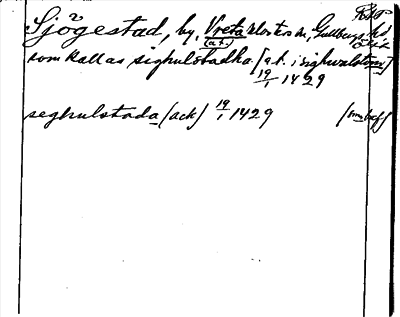 Sjögestad, by, Vreta klosters sn, Gullbergs hd
(a.t.) Ög
som kallas sighulstadha [a.t. i sighwalstom]
19/1 1429
seghulstada (ack) 19/1 1429